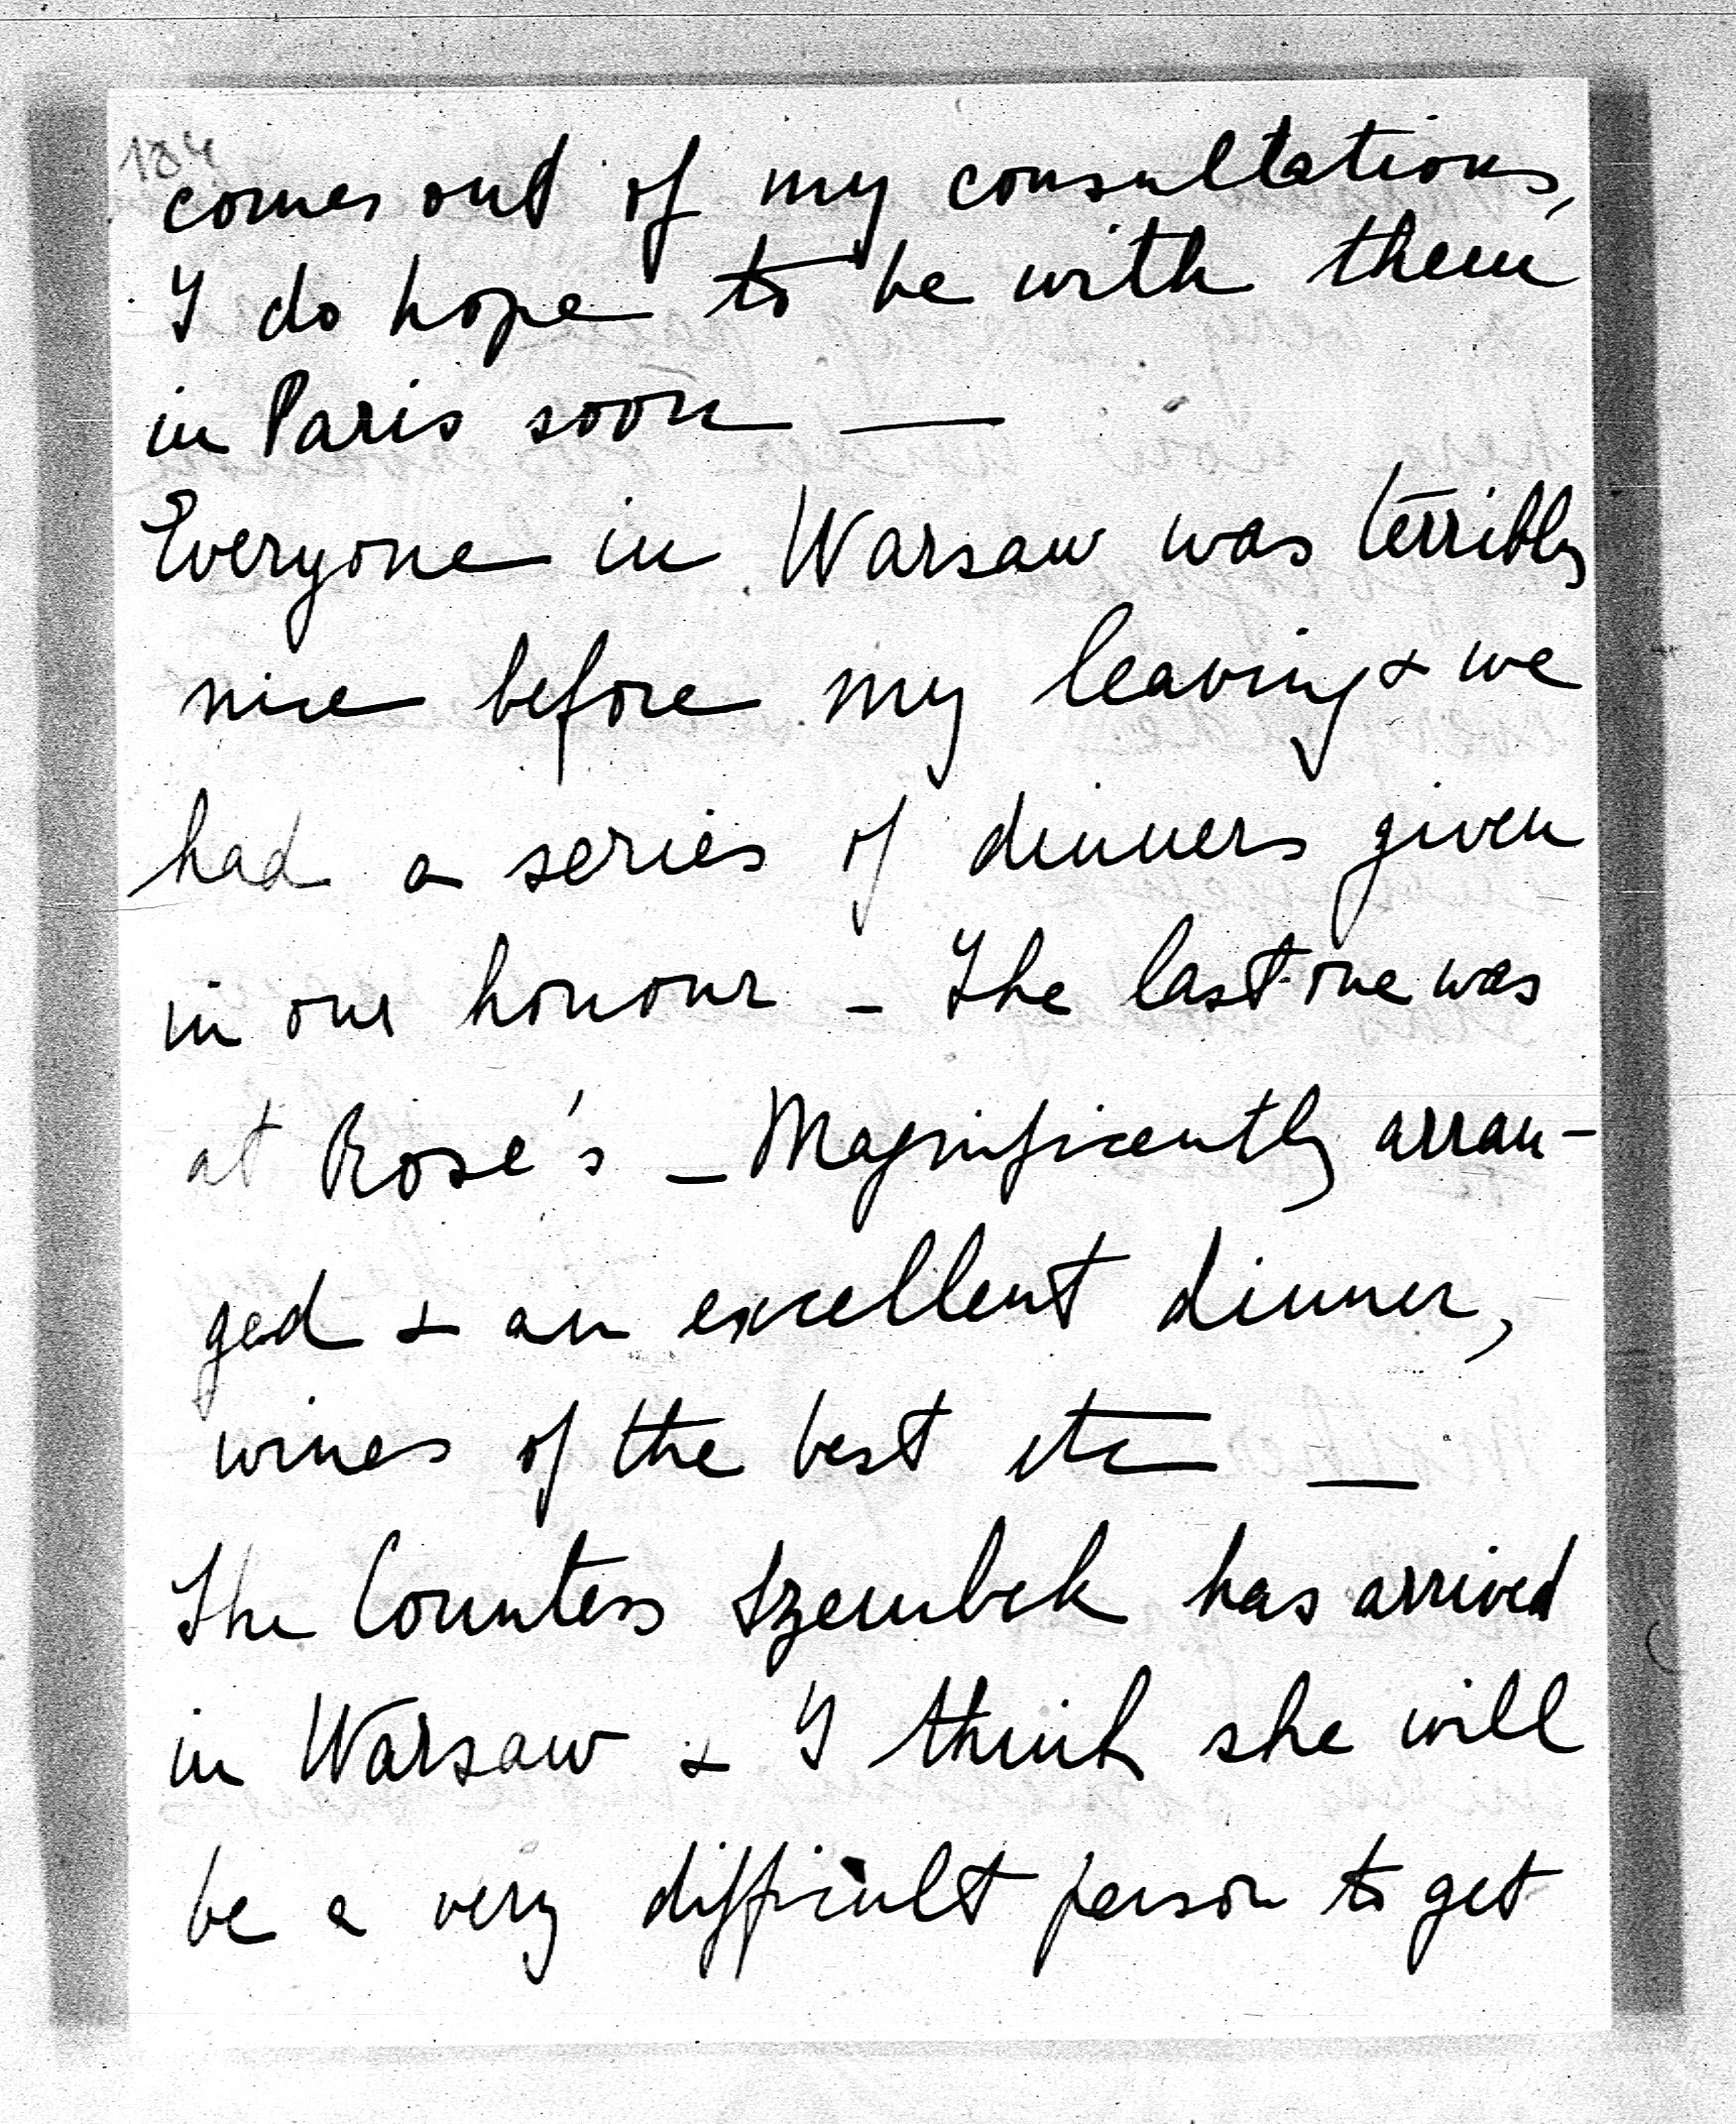 184
comes out of my consultations,
I do hope to be with them
in Paris soon —
Everyone in Warsaw was terribly
nice before my leaving & we
had a series of dinners given
in our honour - The last one was
at Rose's - Magnificently arran-
ged & an excellent dinner,
wines of the best etc —
The Countess Szembek has arrived
in Warsaw & I think she will
be a very difficult person to get